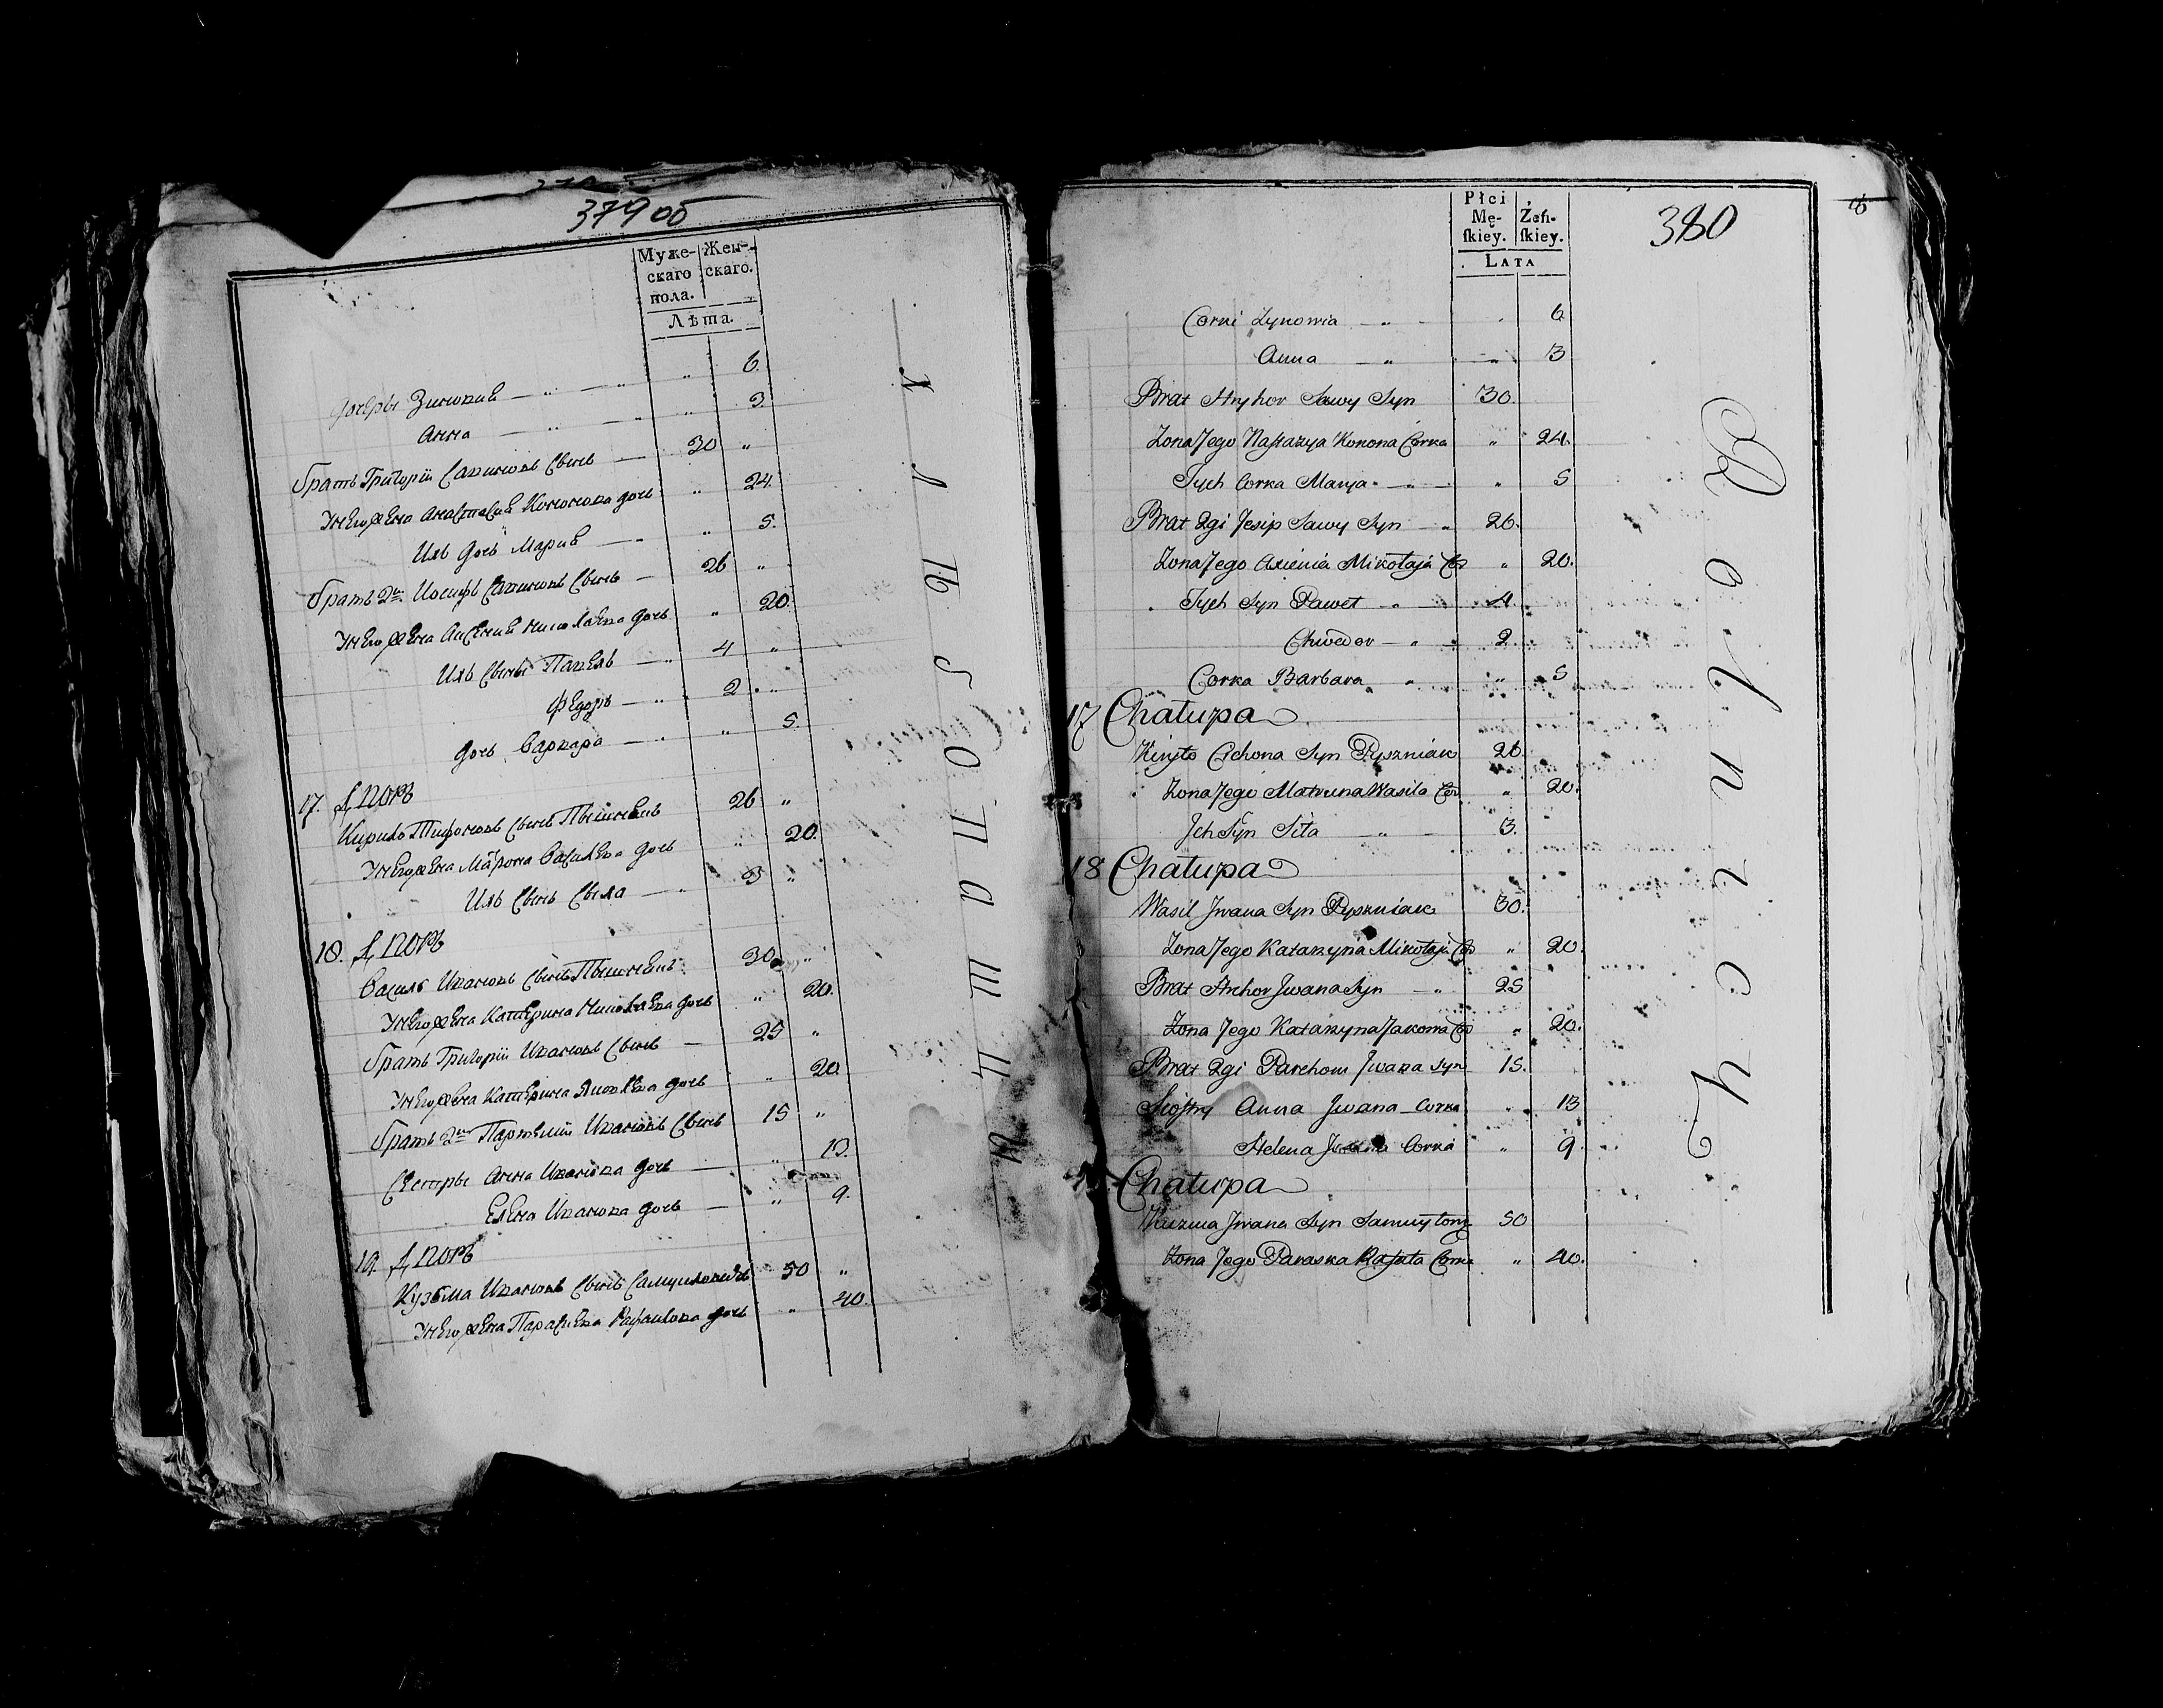 379 об
Муже-
скаго
пола.
Жен-
скаго.
Лѣта.
дочери Зиновия — " — " " 6.
Анна — " — " 3.
братъ Григорій Савиновъ сынъ — 30 "
у него жена Анастасия Кононова дочь " 24.
ихъ дочь Мария — " " 5.
братъ 2й Иосифъ Савиновъ сынъ — 26 "
у него жена Аксения Николаева дочь " 20.
ихъ сыны Павелъ — " 4 "
Федоръ — " 2 "
дочь Варвара — " " 5.
17. Дворъ
Кирило Тифоновъ сынъ 26 "
у него жена Матрона Василева дочь " 20.
ихъ сынъ Сыла — " 3 "
18. Дворъ
Василь Ивановъ сынъ 30 "
у него жена Катерина Николаева дочь " 20.
братъ Григорій Ивановъ сынъ — 25 "
у него жена Катерина Яковлева дочь " 20.
братъ 2й Парфений Ивановъ сынъ 15 "
сестры Анна Иванова дочь — " 13.
Елена Иванова дочь — " 9.
19. Дворъ
Кузьма Ивановъ сынъ Самуиловичъ 50 "
у него жена Параскева Рафаилова дочь " 40.
Płci
Mę-
skiey.
Żeń-
skiey.
Lata
380
Corki Zynowia — " 6
Anna — " " 3
Brat Hryhor Sawy Syn 30.
Zona Jego Nastazya Konona Corka " 24.
Tych Corka Marya — " — " 5
Brat 2gi Jesip Sawy Syn — " 26.
Zona Jego Axienia Mikołaja Cor " 20.
Tych Syn Paweł — " 4.
Chwedor — " 2.
Corka Barbara " " 5
17 Chałupa
Kiryło Cichona Syn Pyszniak 26
Zona Jego Matruna Wasila Cor " 20.
Jch Syn Siła — " 3.
18 Chałupa
Wasil Jwana Syn Pyszniak 30.
Zona Jego Katarzyna Mikołaja Cor " 20.
Brat Hrehor Jwana Syn — " 25
Zona Jego Katarzyna Jakowa Cor " 20.
Brat 2gi Parchom Jwana Syn 15.
Siostry Anna Jwana Corka " 13
Helena Jwana Corka " 9.
Chałupa
Kuzma Jwana Syn 50
Zona Jego Paraska Rafała Corka " 40.